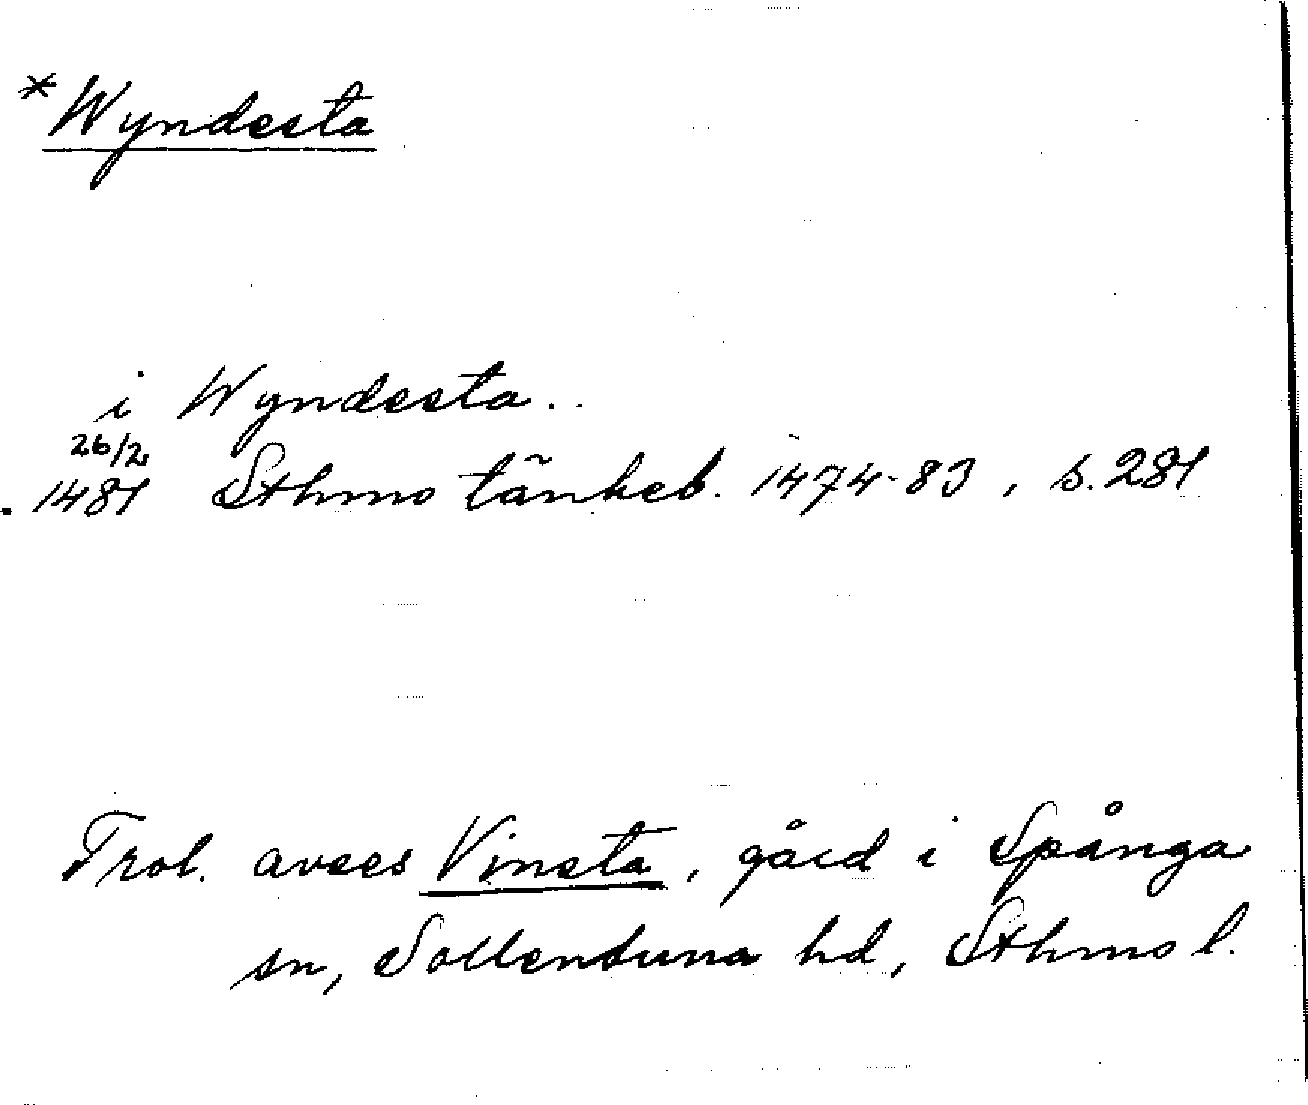 *Wyndesta
i Wyndesta..
26/2
1481 Sthms tänkeb. 1474-83, s. 281
Trol. avses Vinsta, gård i Spånga
sn, Sollentuna hd, Sthms l.